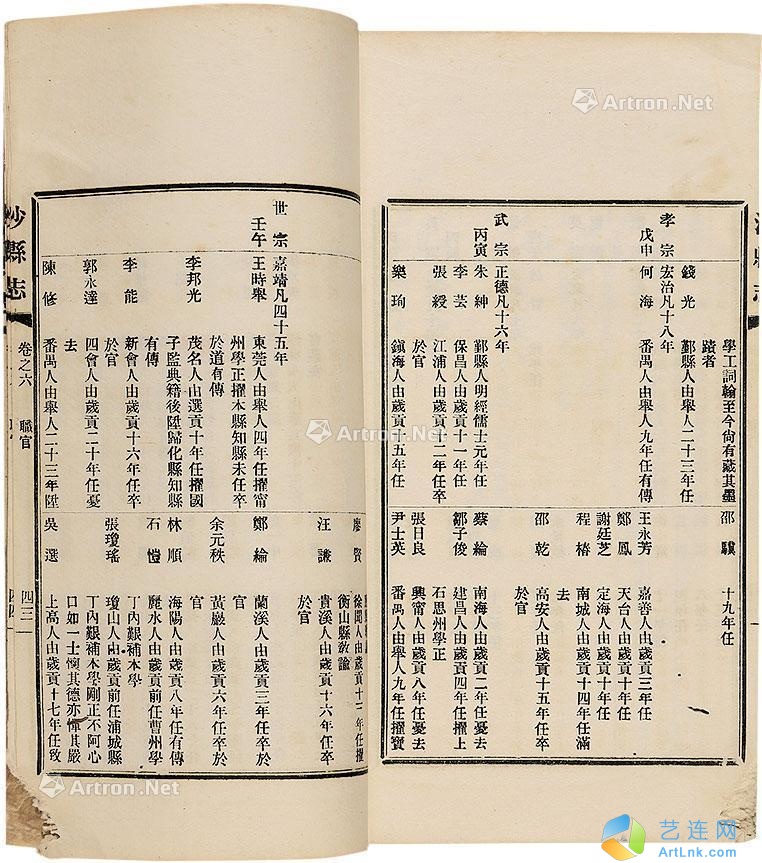 學工詞翰至今尚有藏其墨
蹟者
錢光 鄞縣人由舉人二十三年任
孝宗 宏治凡十八年
戊申 何海 番禺人由舉人九年任有傳
武宗 正德凡十六年
丙寅 朱紳 鄞縣人明經儒士元年任
李芸 保昌人由歲貢十一年任
張綬 江浦人由歲貢十二年任卒
欒珣 鎮海人由歲貢十五年任
邵驥 十九年任
王永芳 嘉善人由歲貢三年任
鄭鳳 天台人由歲貢十年任
謝廷芝 定海人由歲貢十年任
程椿 南城人由歲貢十四年任滿
去
邵乾 高安人由歲貢十五年任卒
於官
蔡綸 南海人由歲貢二年任憂去
鄒子俊 建昌人由歲貢四年任擢上
石思州學正
張日良 興甯人由歲貢八年任憂去
尹士英 番禺人由舉人九年任擢寶
世宗 嘉靖凡四十五年
壬午 王時舉 東莞人由舉人四年任擢甯
州學正擢本縣知縣未任卒
於道有傳
李邦光 茂名人由選貢十年任擢國
子監典籍後陞歸化縣知縣
有傳
李能 新會人由歲貢十六年任卒
於官
郭永達 四會人由歲貢二十年任憂
去
陳修 番禺人由舉人二十三年陞
廖賢 徐聞人由歲貢十二年任擢
衡山縣教諭
汪謙 貴溪人由歲貢十六年任卒
於官
鄭綸 蘭溪人由歲貢三年任卒於
官
余元秩 黃巖人由歲貢六年任卒於
官
林順 海陽人由歲貢八年任有傳
石愷 麗水人由歲貢前任曹州學
丁內艱補本學
張瓊瑤 瓊山人由歲貢前任浦城縣
丁內艱補本學剛正不阿心
口如一士懷其德亦憚其嚴
吳選 上高人由歲貢十七年任致
沙縣志 卷之六 職官 四三
Artron.Net
Artron.Net
Artron.Net
艺连网
ArtLnk.com